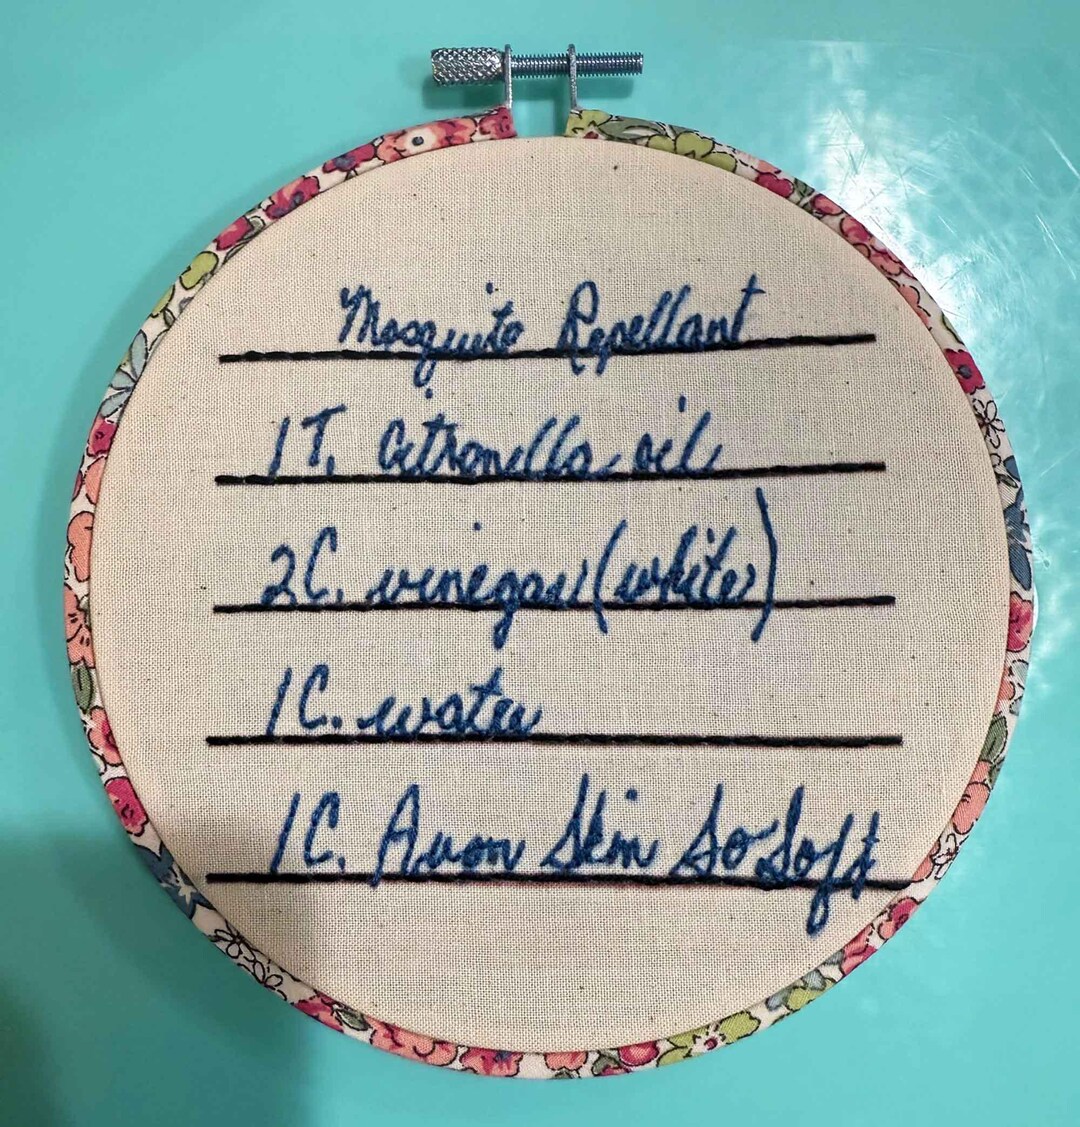 Mosquito Repellant
1T. Citronella oil
2C. vinegar (white)
1C. water
1C. Avon Skin So Soft